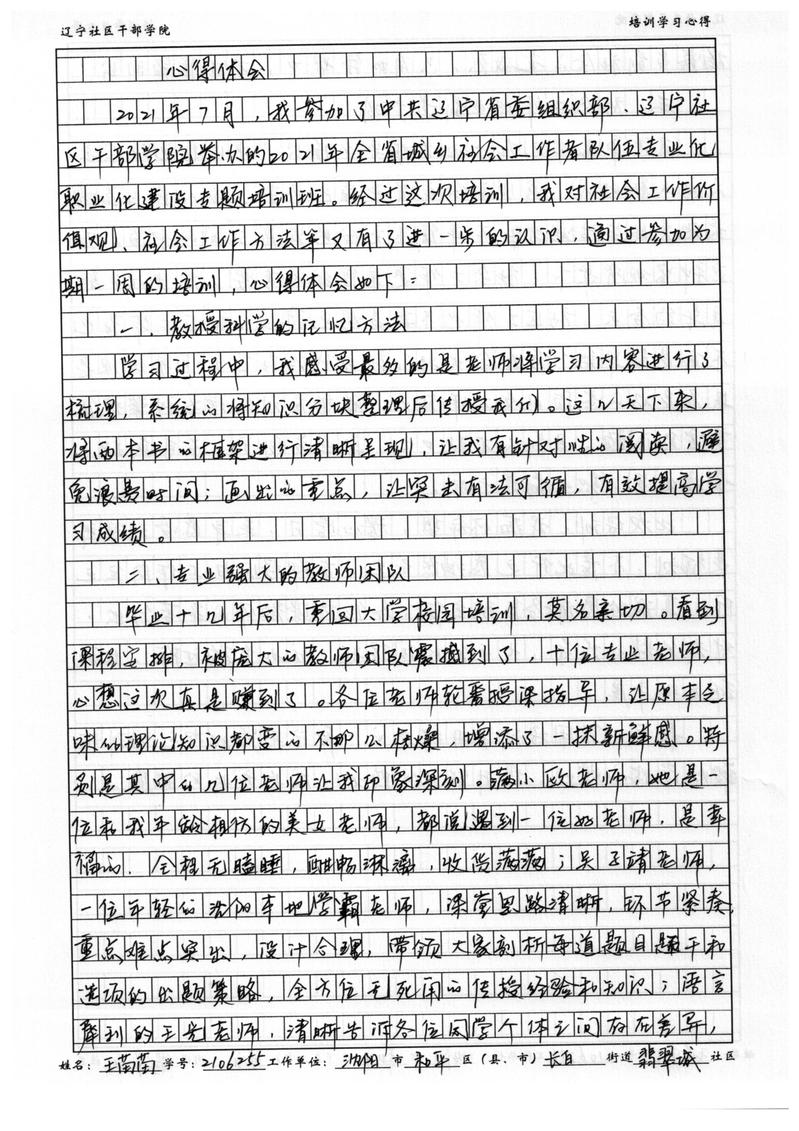 辽宁社区干部学院
培训学习心得
心得体会
2021年7月，我参加了中共辽宁省委组织部、辽宁社
区干部学院举办的2021年全省城乡社会工作者队伍专业化
职业化建设专题培训班。经过这次培训，我对社会工作价
值观、社会工作方法等又有了进一步的认识，通过参加为
期一周的培训，心得体会如下：
一、教授科学的记忆方法
学习过程中，我感受最多的是老师将学习内容进行了
梳理，系统的将知识分块整理后传授我们。这几天下来，
将两本书的框架进行清晰呈现，让我有针对性的阅读，避
免浪费时间；画出的重点，让突击有法可循，有效提高学
习成绩。
二、专业强大的教师团队
毕业十几年后，重回大学校园培训，莫名亲切。看到
课程安排，被庞大的教师团队震撼到了，十位专业老师，
心想这次真是赚到了。各位老师轮番授课指导，让原本乏
味的理论知识都变的不那么枯燥，增添了一抹新鲜感。特
别是其中的几位老师让我印象深刻。小欧老师，她是一
位和我年龄相仿的美女老师，都说遇到一位好老师，是幸
福的，全程无瞌睡，酣畅淋漓，收货满满；吴子靖老师，
一位年轻的沈阳本地学霸老师，课堂思路清晰，环节紧奏，
重点难点突出，设计合理，带领大家剖析每道题目题干和
选项的出题策略，全方位无死角的传授经验和知识；语言
犀利的王老师，清晰告诉各位同学个体之间存在差异，
姓名：王苗苗 学号：2106255 工作单位：沈阳市 和平 区（县、市）长白 街道 翡翠城 社区